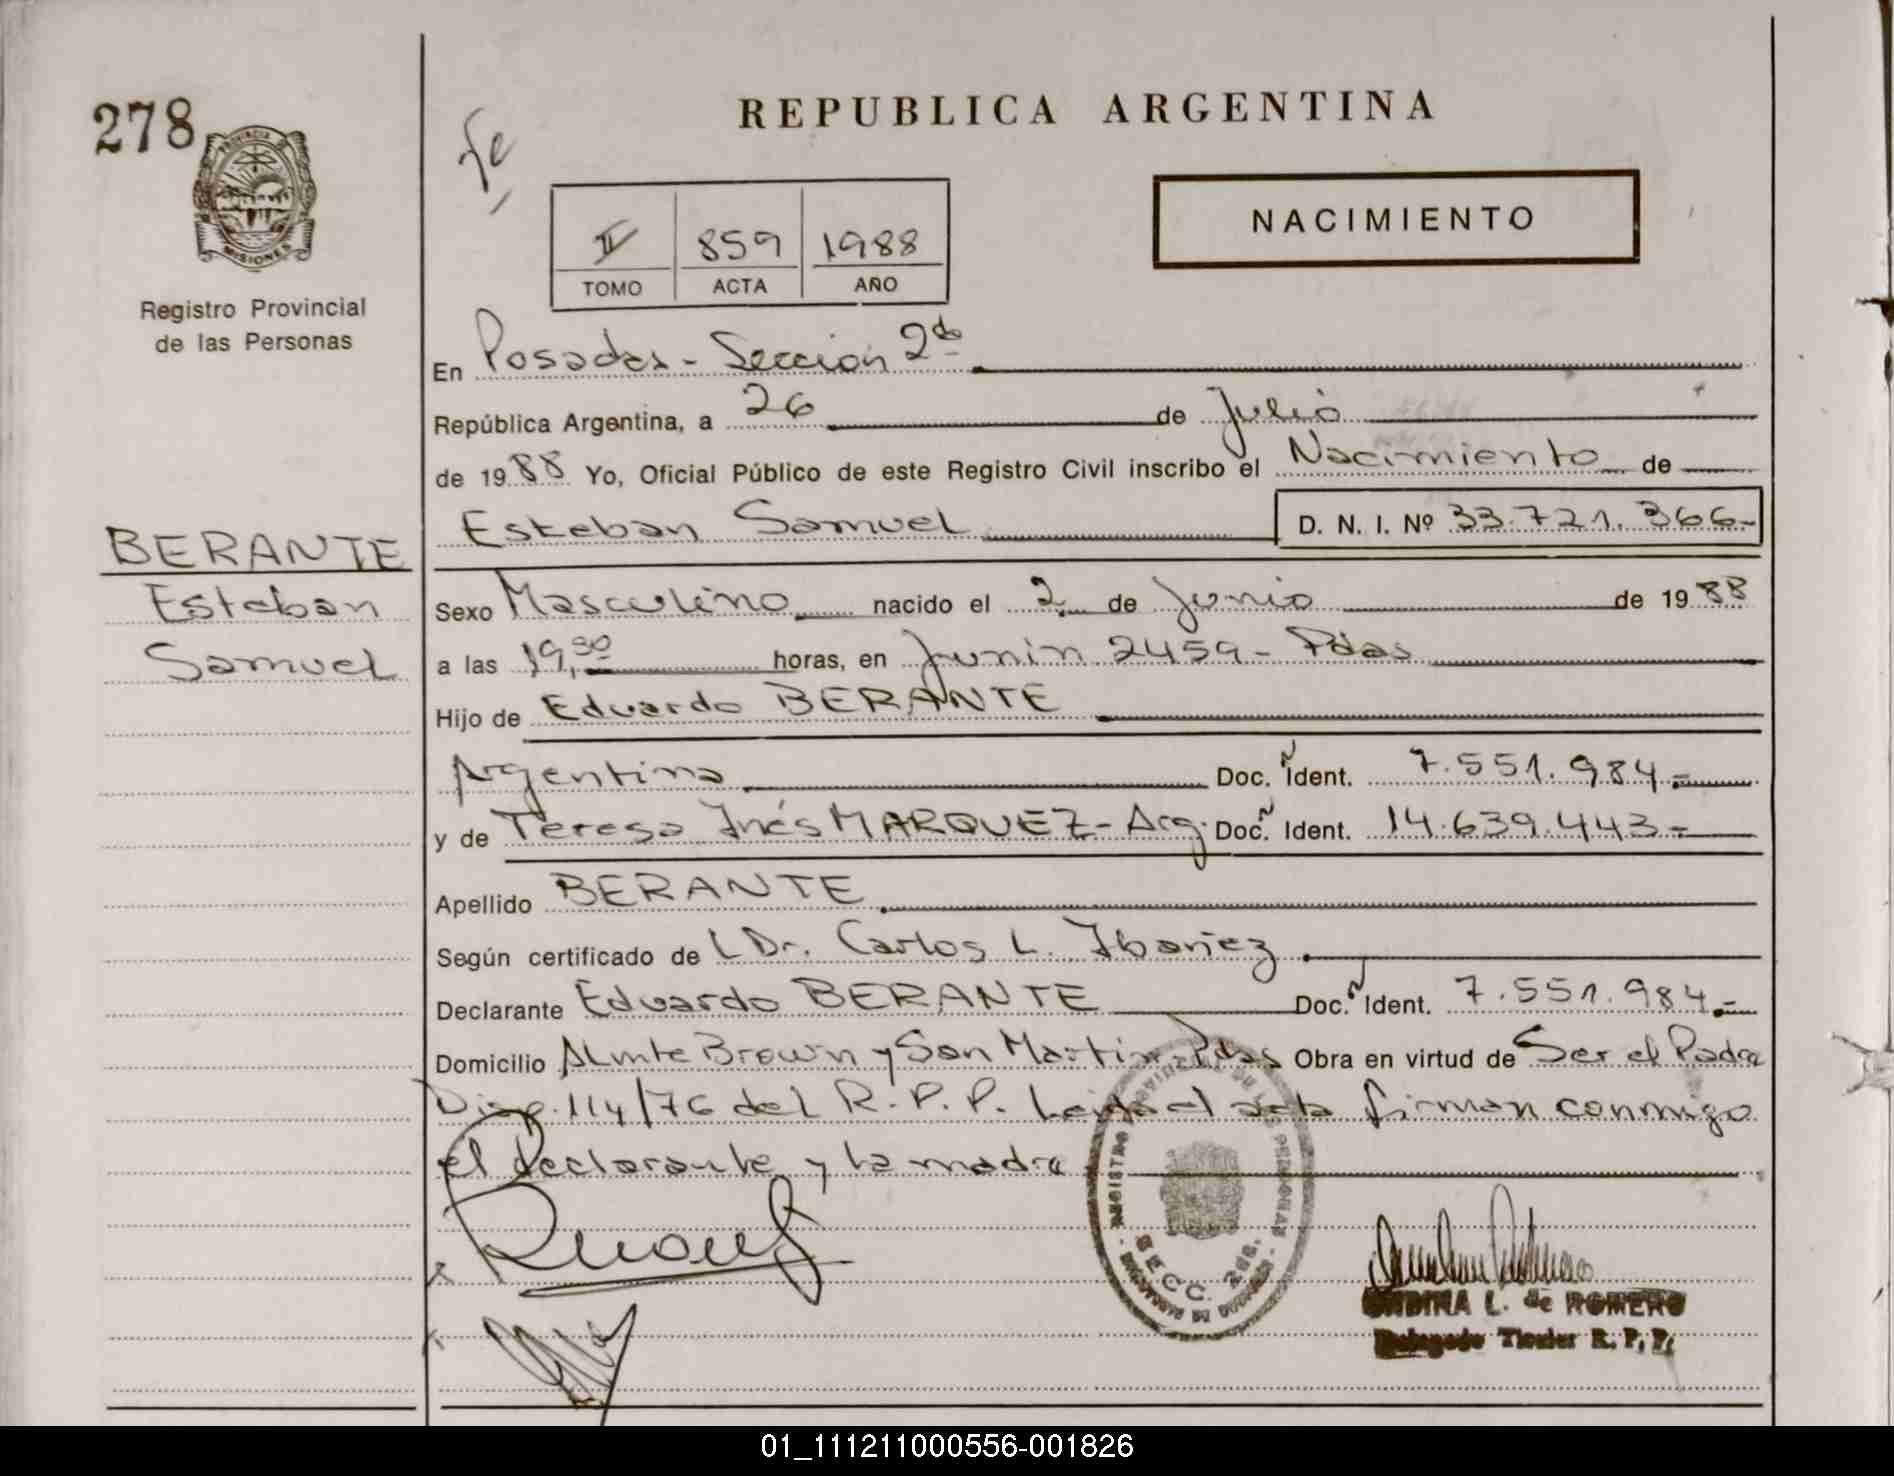 278
REPUBLICA ARGENTINA
PROVINCIA
MISIONES
Registro Provincial
de las Personas
II 859 1988
TOMO ACTA AÑO
NACIMIENTO
En Posadas - Sección 2da
República Argentina, a 26 de Julio
de 1988 Yo, Oficial Público de este Registro Civil inscribo el Nacimiento de
Esteban Samuel D. N. I. Nº 33.721.366-
BERANTE
Esteban
Samuel
Sexo Masculino nacido el 2 de Junio de 1988
a las 19,30 horas, en Junin 2459 - Pdas
Hijo de Eduardo BERANTE
Argentina Doc. Ident. 7.551.984.=
y de Teresa Inés MARQUEZ - Arg. Doc. Ident. 14.639.443.=
Apellido BERANTE
Según certificado de L Dr. Carlos L. Ibañez
Declarante Eduardo BERANTE Doc. Ident. 7.551.984.=
Domicilio ALmte Brown y San Martin - Pdas Obra en virtud de Ser el Padre
Disp. 114/76 del R. P. P. Leida el acta firman conmigo
el declarante y la madre
SECC. 2da.
L. de ROMERO
Titular R. P. P.
01_111211000556-001826